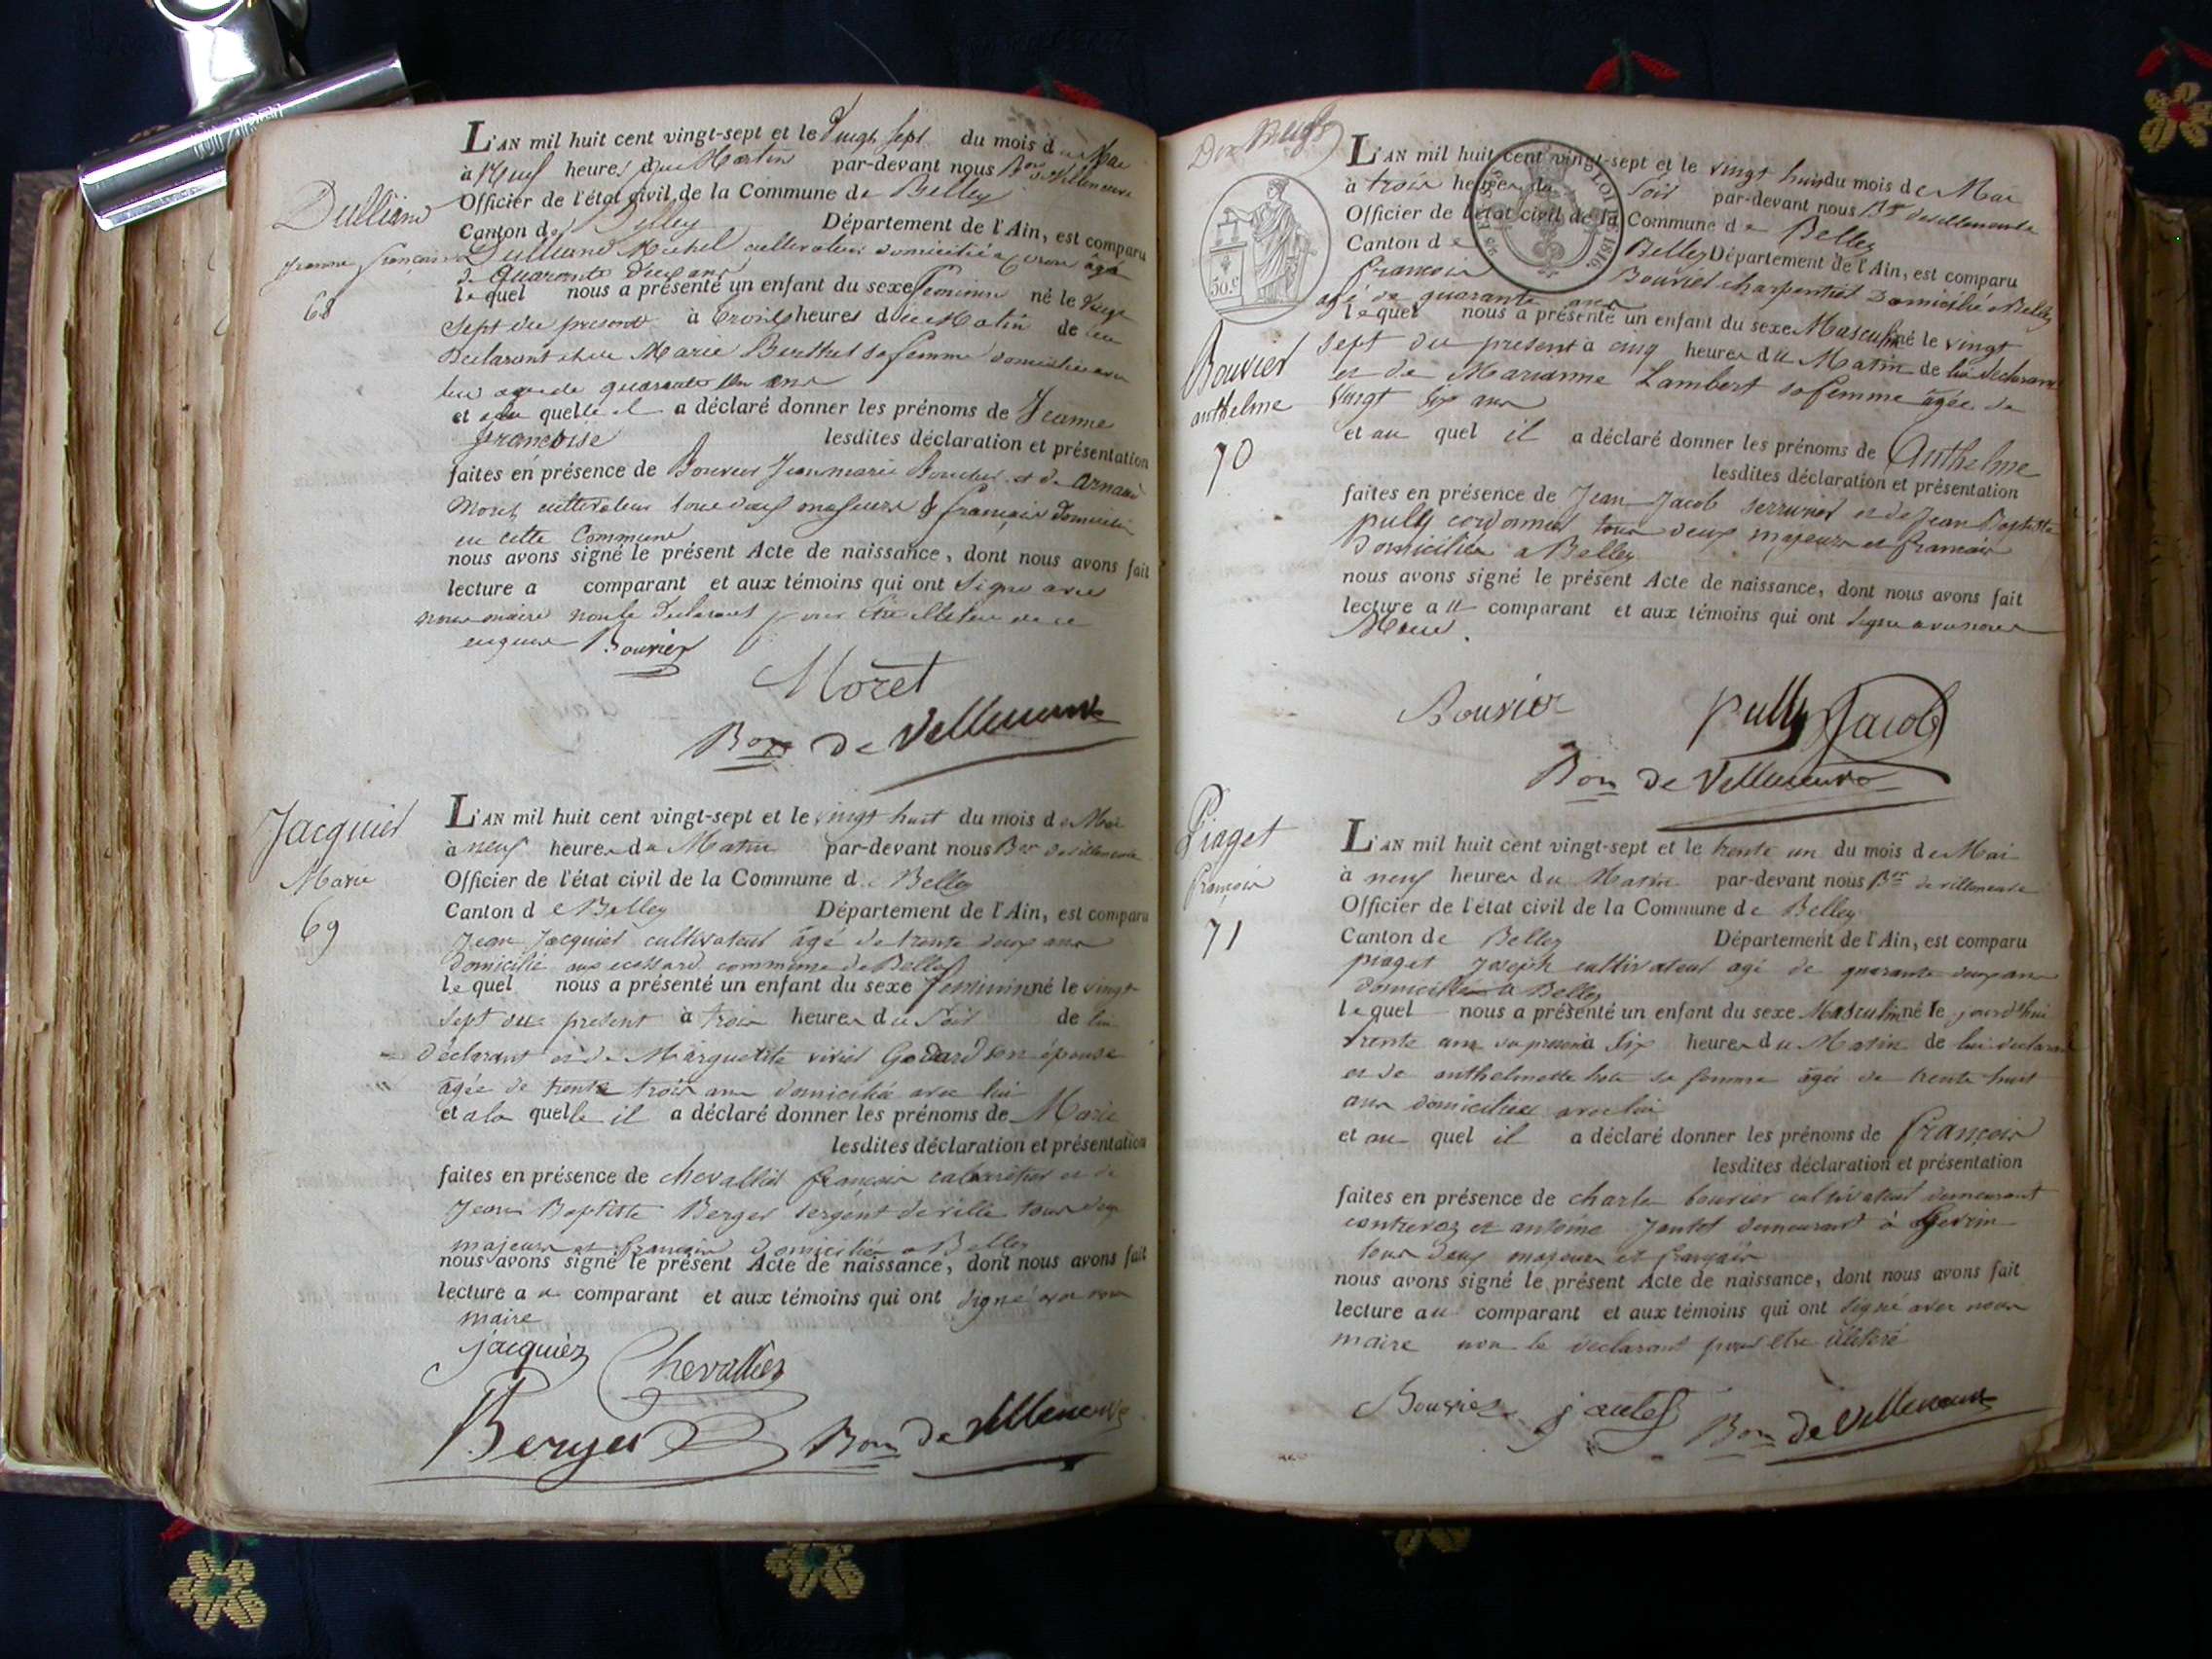 Dulliand
Jeanne françoise
68
L'AN mil huit cent vingt-sept et le vingt sept du mois de Mai
à Neuf heures du Matin par-devant nous Bon de Villeneuve
Officier de l'état civil de la Commune de Belley
Canton de Belley Département de l'Ain, est comparu
Dulliand Michel cultivateur domicilié a âgé
de Quarante deux ans
lequel nous a présenté un enfant du sexe feminin né le vingt
sept du present à trois heures du Matin de lui
Declarant et de Marie Berthet sa femme domiciliée avec
lui agée de quarante un ans
et a la quelle il a déclaré donner les prénoms de Jeanne
françoise lesdites déclaration et présentation
faites en présence de Bouvier Jean marie Boucher et de Arnaud
Moret cultivateur tous deux majeurs & français domiciliés
en cette Commune
nous avons signé le présent Acte de naissance, dont nous avons fait
lecture a comparant et aux témoins qui ont signé avec
nous maire non le declarant pour être illetere de ce
enquis Bouvier
Moret
Bon de Villeneuve
Jacquier
Marie
69
L'AN mil huit cent vingt-sept et le vingt huit du mois de Mai
à neuf heures du Matin par-devant nous Bon de villeneuve
Officier de l'état civil de la Commune de Belley
Canton de Belley Département de l'Ain, est comparu
Jean Jacquier cultivateur âgé de trente deux ans
domicilié aux ecassard commune de Belley
lequel nous a présenté un enfant du sexe feminin né le vingt
sept du present à trois heures du soir de lui
déclarant et de Marguerite Godard son épouse
âgée de trente trois ans domiciliée avec lui
et a la quelle il a déclaré donner les prénoms de Marie
lesdites déclaration et présentation
faites en présence de chevallier françois cabaretier et de
Jean Baptiste Berger sergent de ville tous deux
majeurs et français domiciliés a Belley
nous avons signé le présent Acte de naissance, dont nous avons fait
lecture a u comparant et aux témoins qui ont signé avec nous
maire
jacquier Chevallier
Berger Bon de Villeneuve
Dix Neuf
50.c
LOI 1816.
Bouvier
anthelme
70
L'AN mil huit cent vingt-sept et le vingt huit du mois de Mai
à trois heures du soir par-devant nous Bon de villeneuve
Officier de l'état civil de la Commune de Belley
Canton de Belley Département de l'Ain, est comparu
françois Bouvier charpentier Domicilié a Belley
agé de quarante ans
lequel nous a présenté un enfant du sexe Masculin né le vingt
sept du present à cinq heures du Matin de lui déclarant
et de Marianne Lambert sa femme âgée de
vingt six ans
et au quel il a déclaré donner les prénoms de Anthelme
lesdites déclaration et présentation
faites en présence de Jean Jacob serrurier et de Jean Baptiste
pully cordonnier tous deux majeurs et français
Domiciliés a Belley
nous avons signé le présent Acte de naissance, dont nous avons fait
lecture a u comparant et aux témoins qui ont signé avec nous
Maire.
Bouvier pully Jacob
Bon de Villeneuve
Piaget
françois
71
L'AN mil huit cent vingt-sept et le trente un du mois de Mai
à neuf heures du Matin par-devant nous Bon de villeneuve
Officier de l'état civil de la Commune de Belley
Canton de Belley Département de l'Ain, est comparu
piaget Joseph cultivateur agé de quarante deux ans
domicilié a Belley
lequel nous a présenté un enfant du sexe Masculin né le jourd'hui
trente un du present à six heures du Matin de lui declarant
et de anthelmette sa femme âgée de trente huit
ans domiciliée avec lui
et au quel il a déclaré donner les prénoms de françois
lesdites déclaration et présentation
faites en présence de charle bouvier cultivateur demeurant
contrevoz et antoine demeurant à
tous deux majeurs et français
nous avons signé le présent Acte de naissance, dont nous avons fait
lecture au comparant et aux témoins qui ont signé avec nous
maire non le declarant pour etre illiteré
Bouvier Bon de Villeneuve